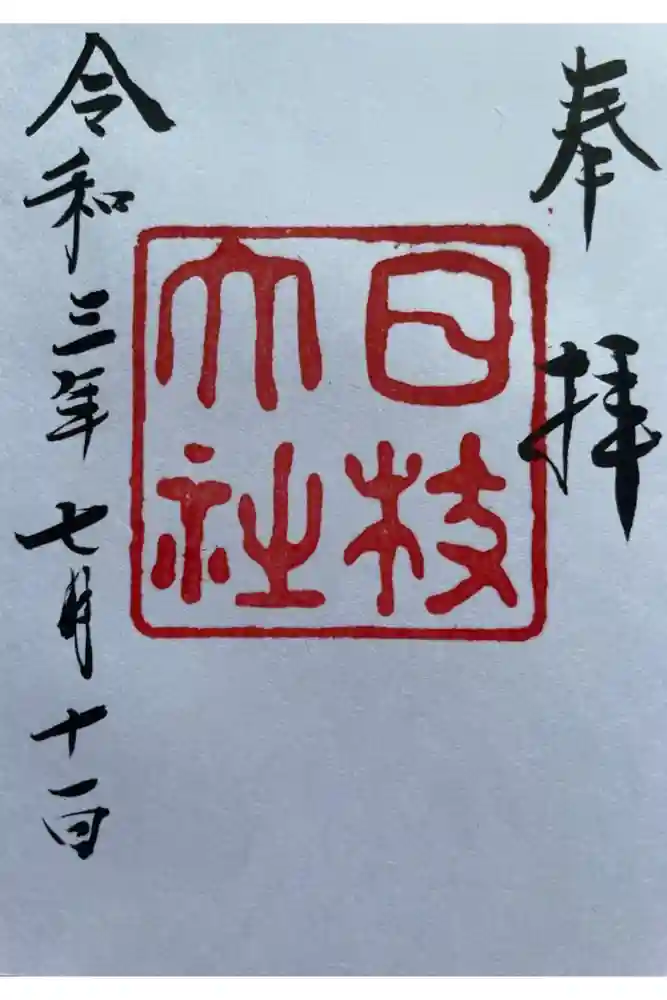 奉拝
日枝
大社
令和三年七月十一日